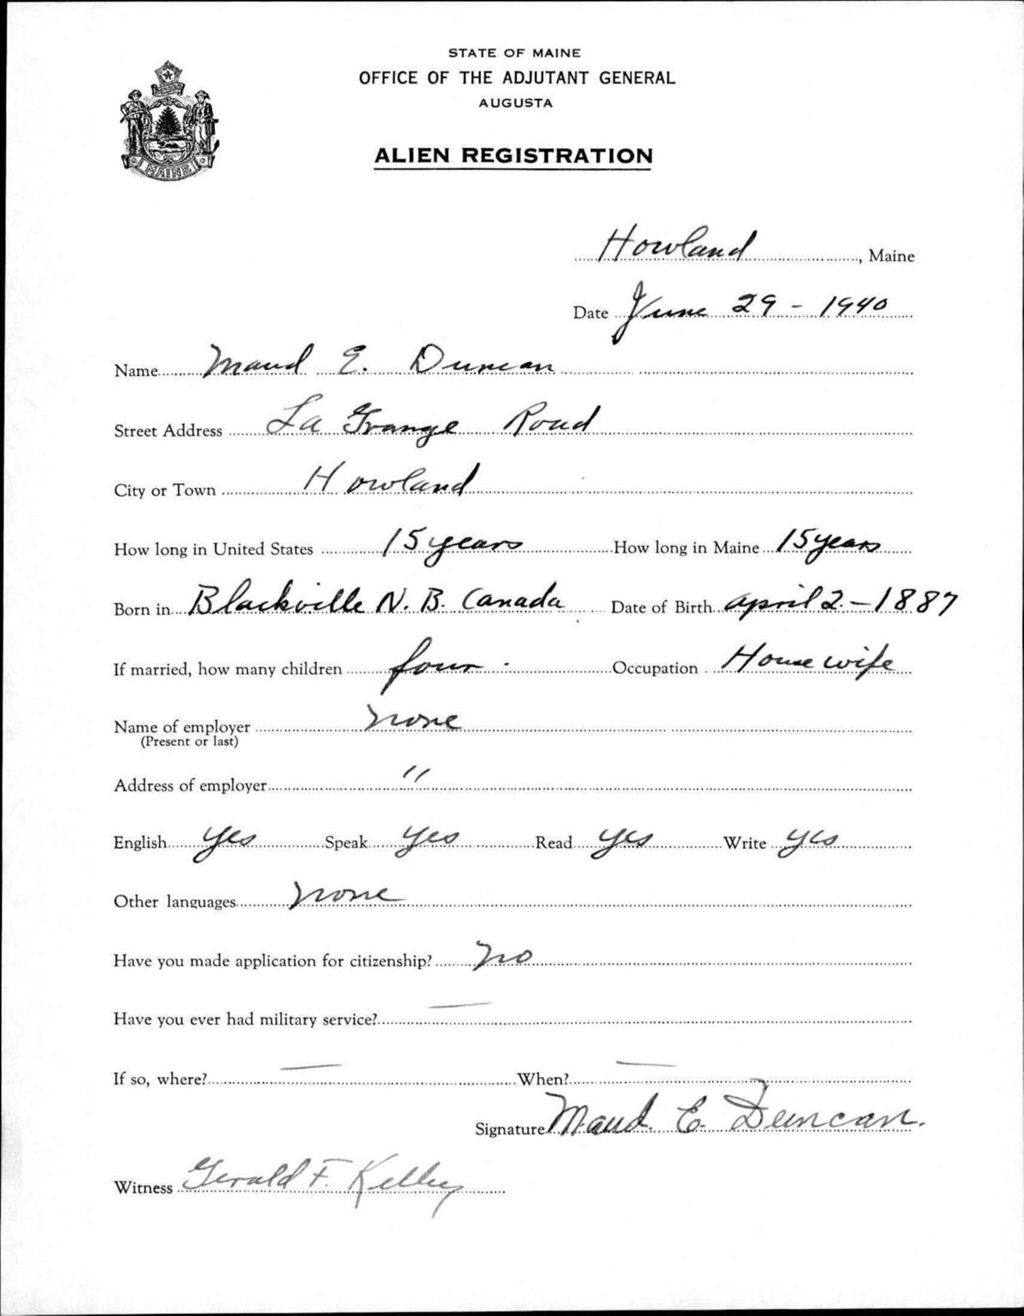 STATE OF MAINE
OFFICE OF THE ADJUTANT GENERAL
AUGUSTA
ALIEN REGISTRATION
MAINE
Howland, Maine
Date June 29 - 1940
Name Maud E. Duncan
Street Address La Grange Road
City or Town Howland
How long in United States 15 years How long in Maine 15 years
Born in Blackville N. B. Canada Date of Birth April 2 - 1887
If married, how many children four Occupation House wife
Name of employer none
(Present or last)
Address of employer "
English yes Speak yes Read yes Write yes
Other languages none
Have you made application for citizenship? no
Have you ever had military service? —
If so, where? — When? —
Signature Maud E. Duncan.
Witness Gerald F. Kelley